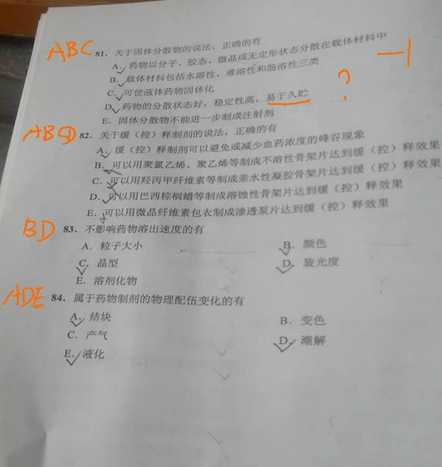 ABC 81. 关于固体分散物的说法，正确的有
A. 药物以分子、胶态、微晶或无定形状态分散在载体材料中
B. 载体材料包括水溶性、难溶性和肠溶性三类
C. 可使液体药物固体化
D. 药物的分散状态好，稳定性高，易于久贮 ? —1
E. 固体分散物不能进一步制成注射剂
82. 关于缓（控）释制剂的说法，正确的有
A. 缓（控）释制剂可以避免或减少血药浓度的峰谷现象
B. 可以用聚氯乙烯、聚乙烯等制成不溶性骨架片达到缓（控）释效果
C. 可以用羟丙甲纤维素等制成亲水性凝胶骨架片达到缓（控）释效果
D. 可以用巴西棕榈蜡等制成溶蚀性骨架片达到缓（控）释效果
E. 可以用微晶纤维素包衣制成渗透泵片达到缓（控）释效果
BD 83. 不影响药物溶出速度的有
A. 粒子大小 B. 颜色
C. 晶型 D. 旋光度
E. 溶剂化物
ADE 84. 属于药物制剂的物理配伍变化的有
A. 结块 B. 变色
C. 产气 D. 潮解
E. 液化